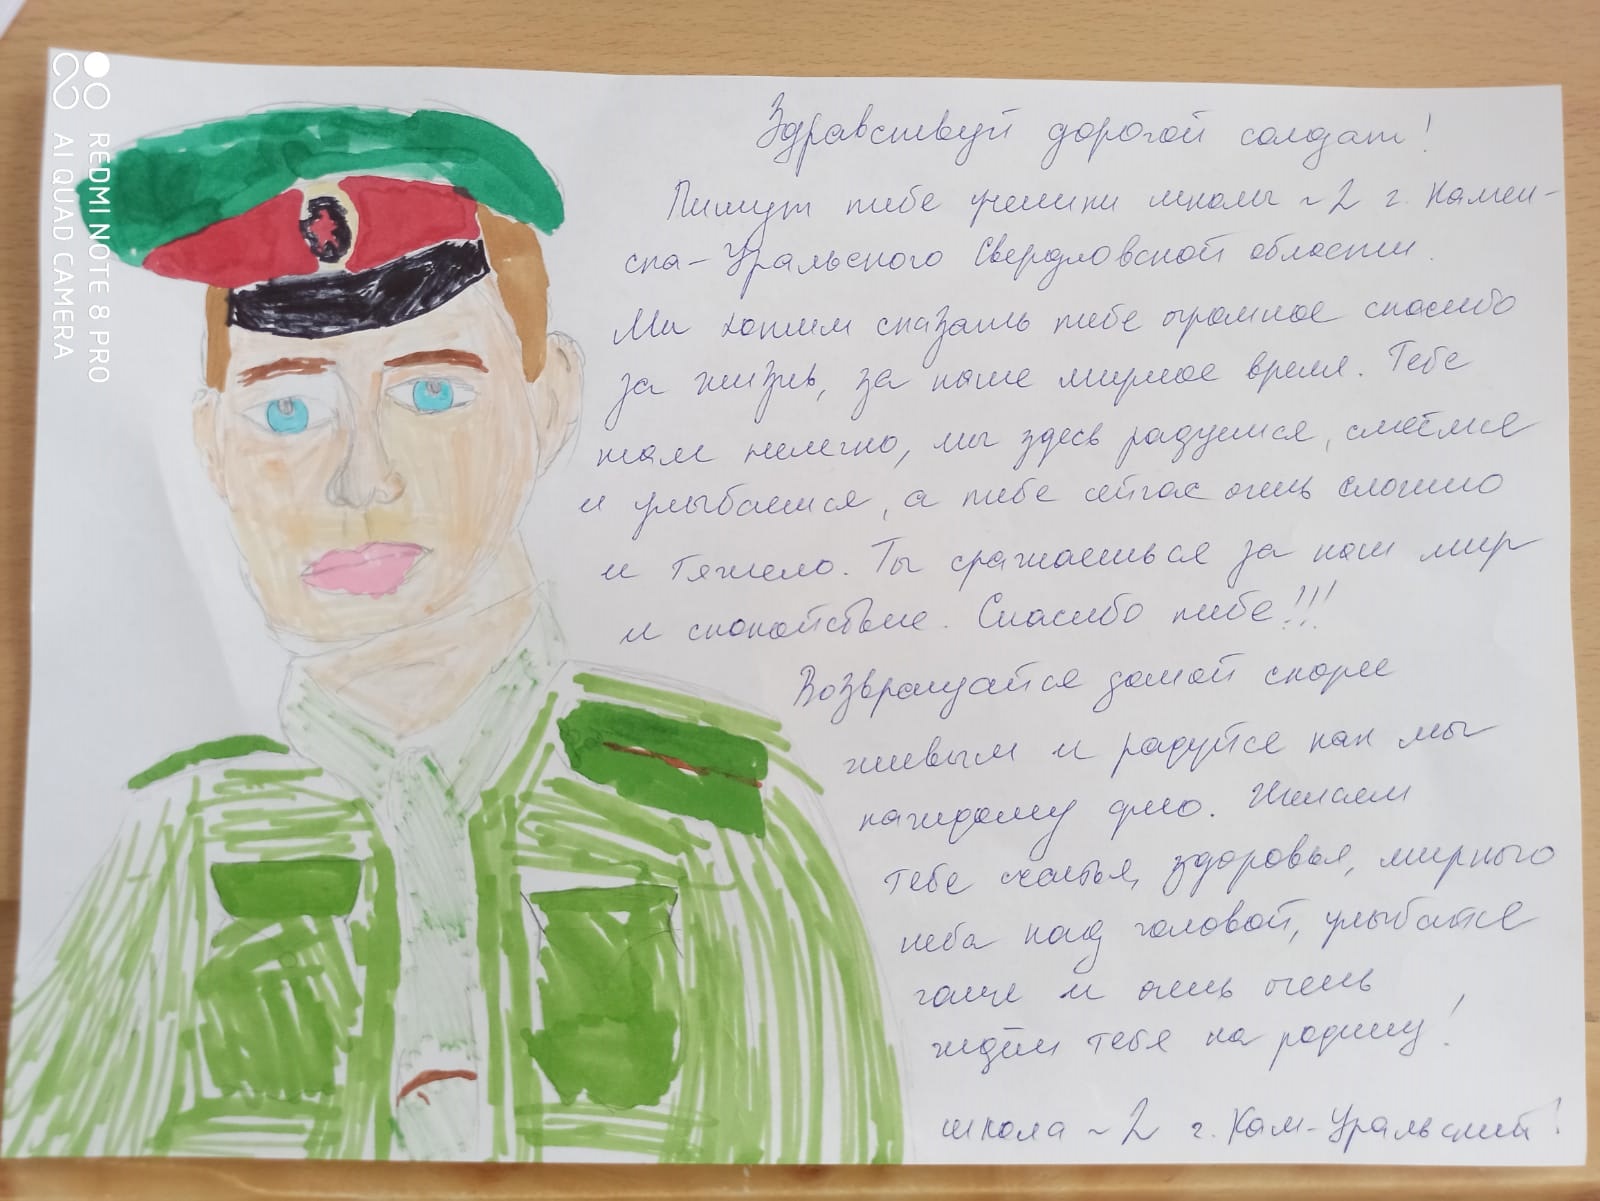 REDMI NOTE 8 PRO
AI QUAD CAMERA
Здравствуй дорогой солдат!
Пишут тебе ученики школы ~2 г. Камен-
ска-Уральского Свердловской области.
Мы хотим сказать тебе огромное спасибо
за жизнь, за наше мирное время. Тебе
там нелегко, мы здесь радуемся, смеёмся
и улыбаемся, а тебе сейчас очень сложно
и тяжело. Ты сражаешься за наш мир
и спокойствие. Спасибо тебе!!!
Возвращайся домой скорее
живым и радуйся как мы
каждому дню. Желаем
тебе счастья, здоровья, мирного
неба над головой, улыбайся
чаще и очень очень
ждём тебя на родину!
школа ~2 г. Кам-Уральский!